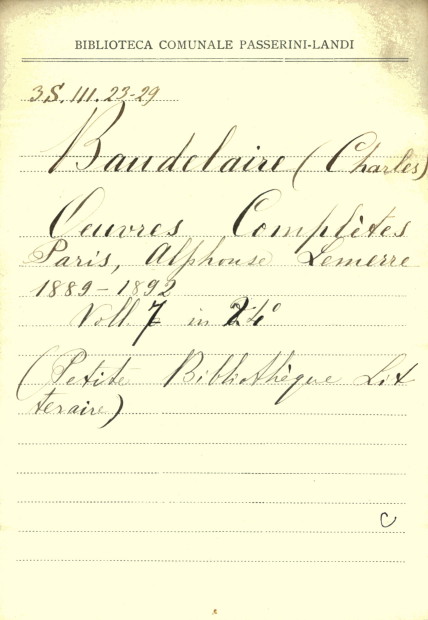 BIBLIOTECA COMUNALE PASSERINI-LANDI
3.S.III.23-29
Baudelaire (Charles)
Oeuvres Complètes
Paris, Alphonse Lemerre
1889-1892
Voll. 7 in 24°
(Petite Bibliothèque Lit
teraire)
C